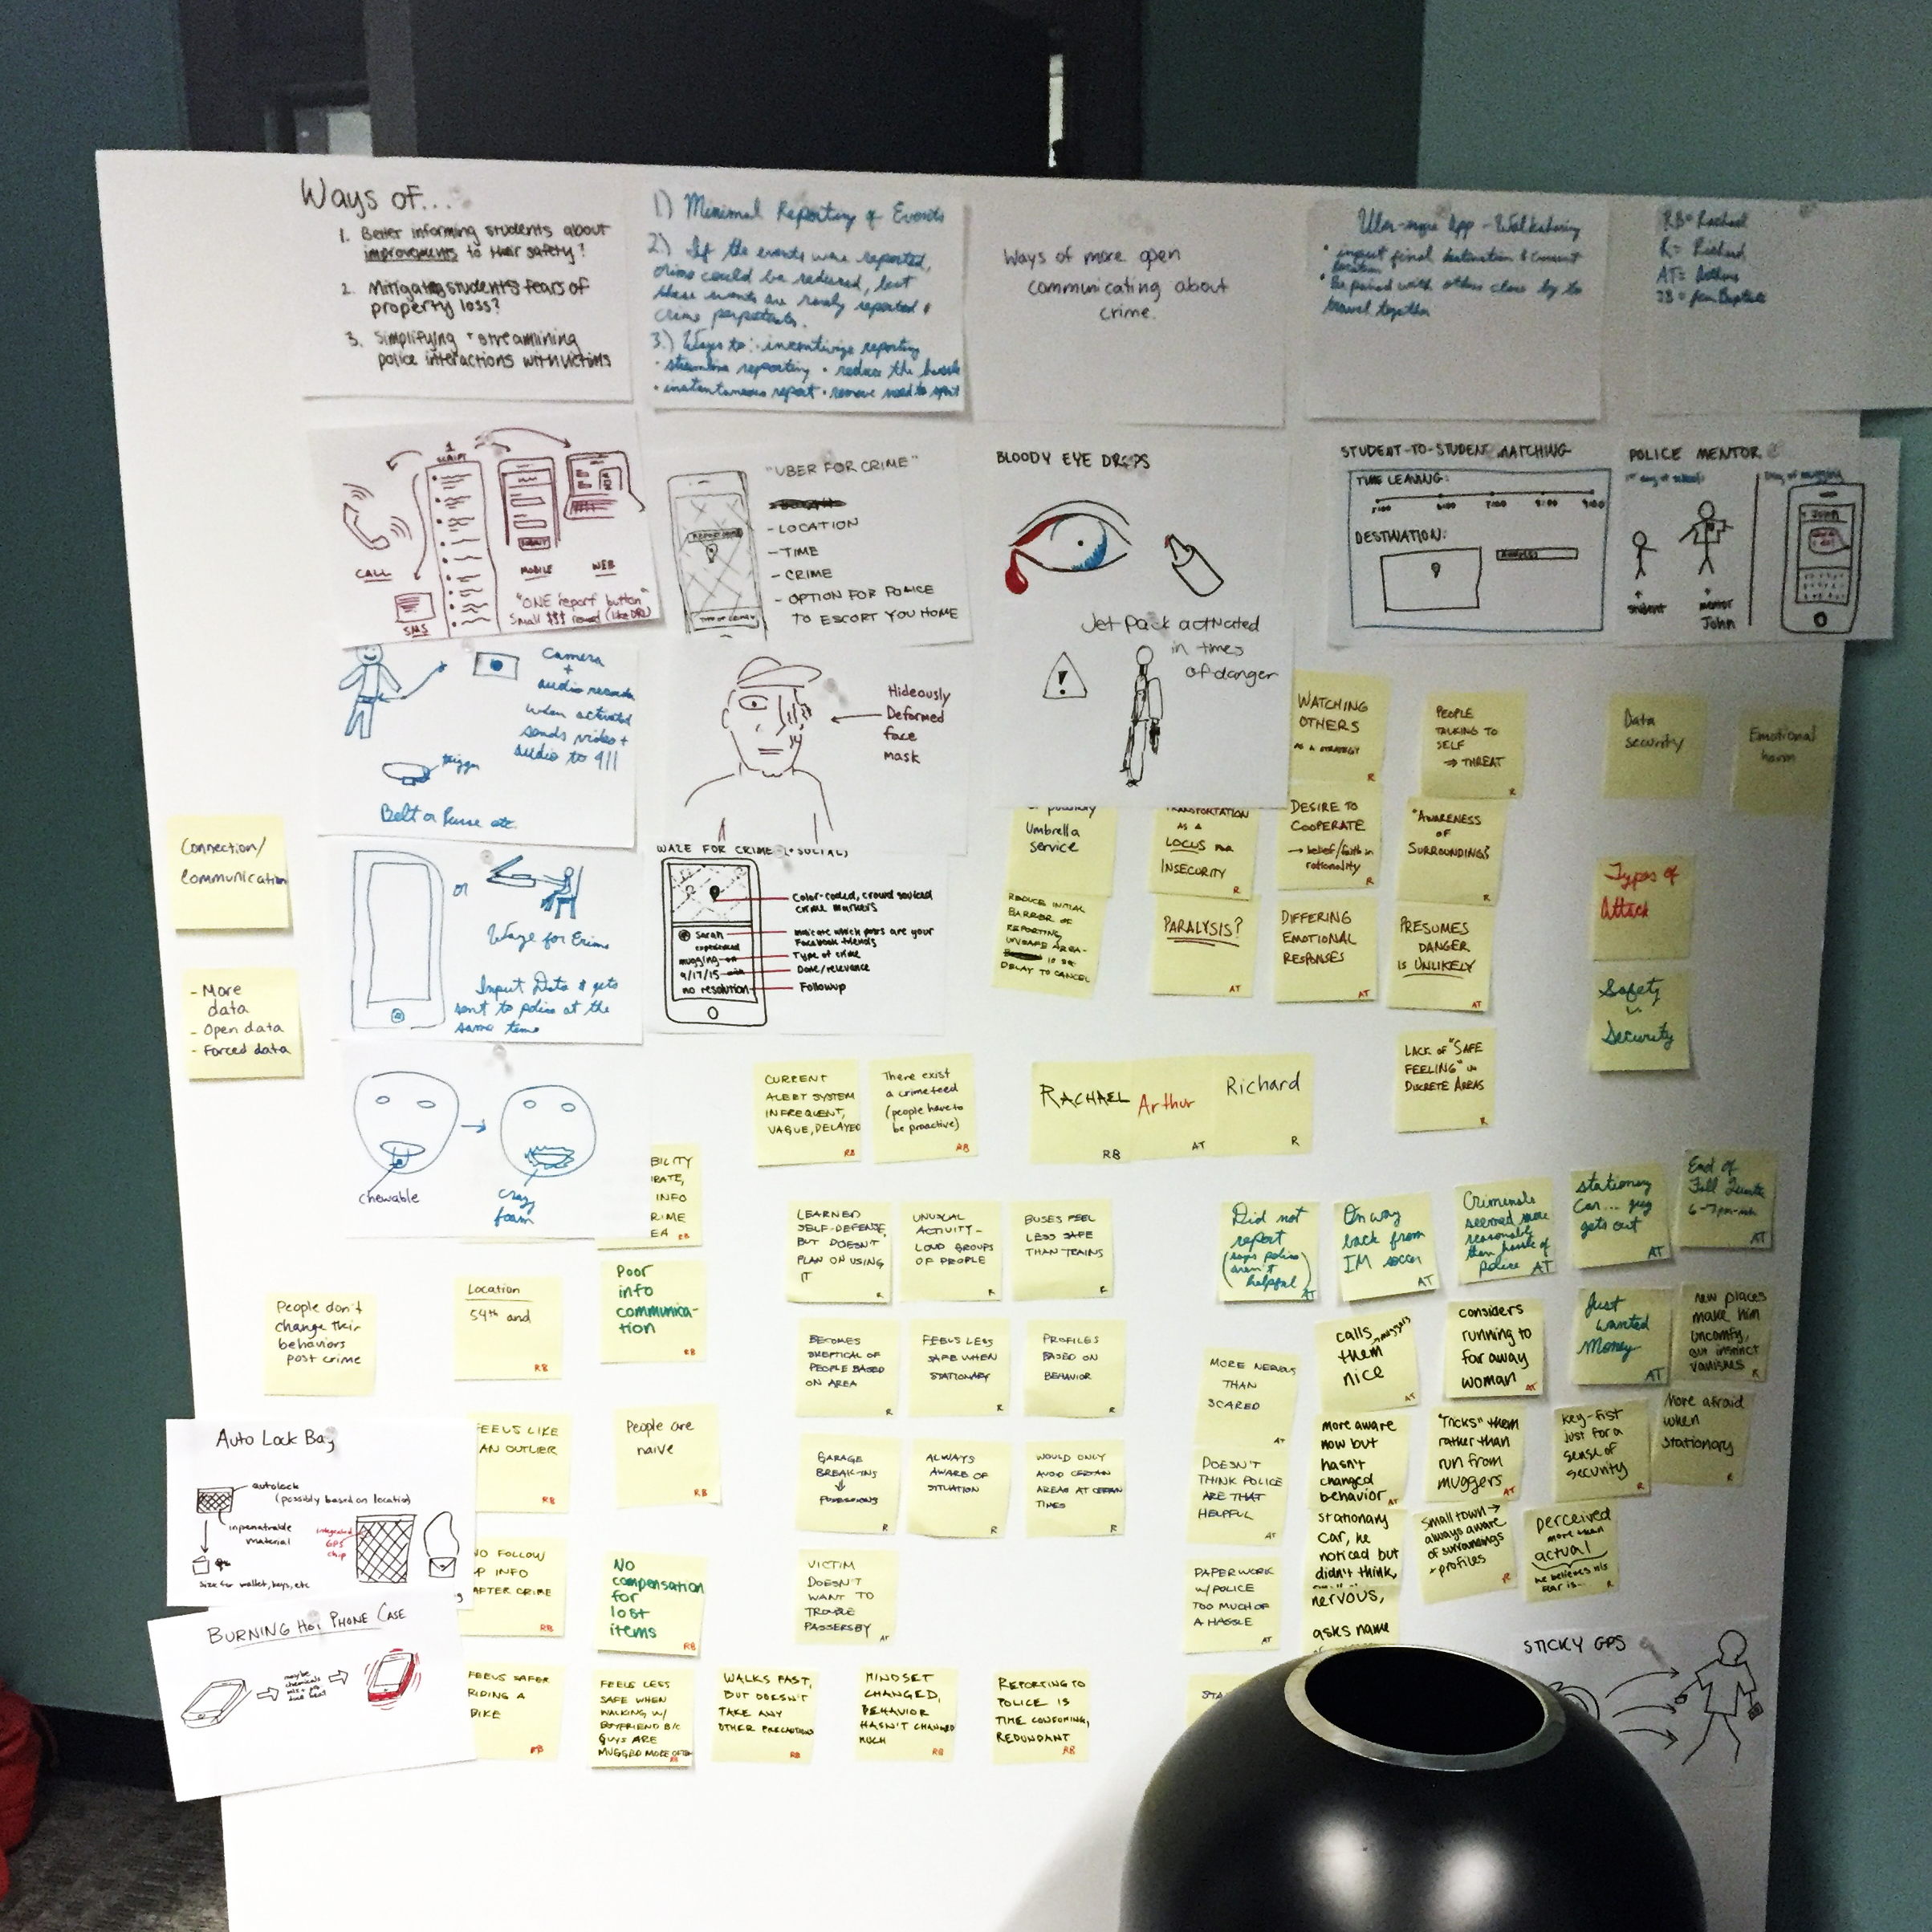 Ways of...
1. Better informing students about
improvements to their safety?
2. Mitigating students fears of
property loss?
3. Simplifying + streamlining
police interactions with victims
1) Minimal Reporting of Events
2) If the events were reported,
crime could be reduced, but
these events are rarely reported &
crime perpetuates.
3.) Ways to: incentivize reporting
· streamline reporting · reduce the hassle
· instantaneous report · remove need to
Ways of more open
communicating about
crime.
Uber-esque App - Walksharing
· input final destination & current
location
· Be paired with others close by to
travel together
RB = Rachael
R = Richard
AT = Arthur
JB = Jean Baptiste
1
SCRIPT
CALL
SMS
MOBILE
WEB
"ONE report button"
Small $$$ reward
"UBER FOR CRIME"
- LOCATION
- TIME
- CRIME
- OPTION FOR POLICE
TO ESCORT YOU HOME
BLOODY EYE DROPS
STUDENT-TO-STUDENT MATCHING
TIME LEAVING:
DESTINATION:
POLICE MENTOR
student
mentor
John
Camera
+
audio records
when activated
sends video +
audio to 911
trigger
Belt or Purse etc.
Hideously
Deformed
face
mask
Jet Pack activated
in times
of danger
!
WATCHING
OTHERS
AS A STRATEGY
R
PEOPLE
TALKING TO
SELF
→ THREAT
R
Data
security
Emotional
harm
Connection/
Communication
- More
data
- Open data
- Forced data
or
Waze for Crime
Input Data & gets
sent to police at the
same time
WAZE FOR CRIME (+ SOCIAL)
Color-coded, crowd sourced
crime markers
Indicate which posts are your
Facebook friends
Type of crime
Date/relevance
Followup
Sarah
experienced
mugging on
9/17/15
no resolution
Umbrella
service
TRANSPORTATION
AS A
LOCUS FOR
INSECURITY
R
DESIRE TO
COOPERATE
→ belief/faith in
rationality
R
"AWARENESS
OF
SURROUNDINGS"
R
Types of
Attack
REDUCE INITIAL
BARRIER OF
REPORTING
UNSAFE AREA-
DELAY TO CANCEL
PARALYSIS?
AT
DIFFERING
EMOTIONAL
RESPONSES
AT
PRESUMES
DANGER
IS UNLIKELY
AT
Safety
Security
LACK OF "SAFE
FEELING" IN
DISCRETE AREAS
R
chewable
crazy
foam
CURRENT
ALERT SYSTEM
INFREQUENT,
VAGUE, DELAYED
RB
There exist
a crime feed
(people have to
be proactive)
RB
RACHAEL
RB
Arthur
AT
Richard
R
BILITY
RATE,
INFO
RIME
EA
RB
LEARNED
SELF-DEFENSE,
BUT DOESN'T
PLAN ON USING
IT
R
UNUSUAL
ACTIVITY -
LOUD GROUPS
OF PEOPLE
R
BUSES FEEL
LESS SAFE
THAN TRAINS
R
Did not
report
(says police
aren't
helpful)
AT
On way
back from
IM soccer
AT
Criminals
seemed more
reasonable
than hassle of
police
AT
stationary
Car... guy
gets out
AT
End of
Fall Quarter
AT
People don't
change their
behaviors
post crime
Location
54th and
RB
Poor
info
communica-
tion
RB
BECOMES
SKEPTICAL OF
PEOPLE BASED
ON AREA
R
FEELS LESS
SAFE WHEN
STATIONARY
R
PROFILES
BASED ON
BEHAVIOR
R
MORE NERVOUS
THAN
SCARED
AT
calls muggers
them
nice
AT
considers
running to
far away
woman
AT
Just
wanted
Money
AT
new places
make him
uncomfy,
gut instinct
vanishes
R
Auto Lock Bag
autolock
(possibly based on location)
inpenatrable
material
integrated
GPS
chip
size for wallet, keys, etc
FEELS LIKE
AN OUTLIER
RB
People are
naive
RB
GARAGE
BREAK-INS
↓
POSSESSIONS
R
ALWAYS
AWARE OF
SITUATION
R
WOULD ONLY
AVOID CERTAIN
AREAS AT CERTAIN
TIMES
R
DOESN'T
THINK POLICE
ARE THAT
HELPFUL
AT
more aware
now but
hasn't
changed
behavior
AT
"TRICKS" them
rather than
run from
muggers
AT
key-fist
just for a
sense of
security
R
More afraid
when
stationary
R
NO FOLLOW
UP INFO
AFTER CRIME
RB
No
compensation
for
lost
items
RB
VICTIM
DOESN'T
WANT TO
TROUBLE
PASSERSBY
AT
PAPERWORK
W/POLICE
TOO MUCH OF
A HASSLE
AT
stationary
car, he
noticed but
didn't think,
nervous,
asks name
small town →
always aware
of surroundings
+ profiles
R
perceived
more than
actual
he believes his
fear is...
R
BURNING HOT PHONE CASE
FEELS SAFER
RIDING A
BIKE
RB
FEELS LESS
SAFE WHEN
WALKING W/
BOYFRIEND B/C
GUYS ARE
MUGGED MORE OFTEN
RB
WALKS FAST,
BUT DOESN'T
TAKE ANY
OTHER PRECAUTIONS
RB
MINDSET
CHANGED,
BEHAVIOR
HASN'T CHANGED
MUCH
RB
REPORTING TO
POLICE IS
TIME CONSUMING,
REDUNDANT
RB
STA
STICKY GPS